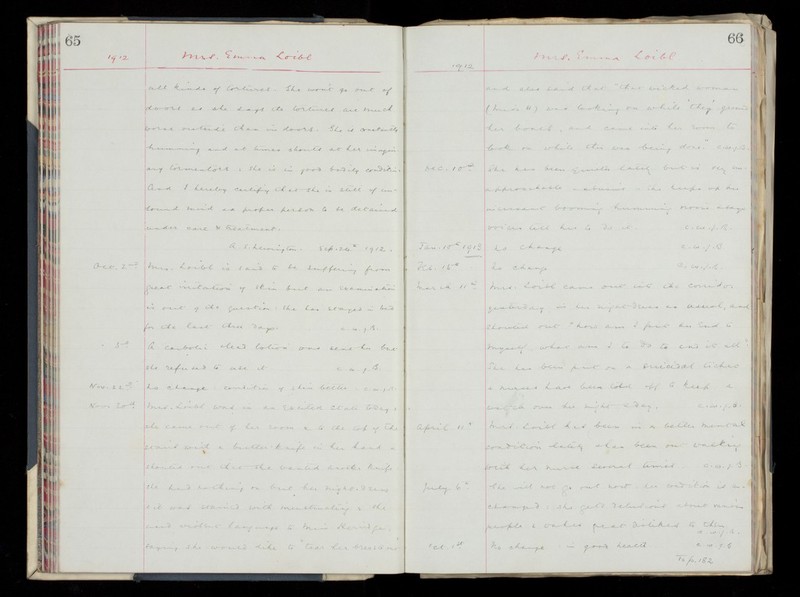 65
1912 Mrs. Emma Loibl
all kinds of tortures. She won't go out of
doors as she says the tortures are much
worse outside than in doors. She is constantly
humming and at times shouts at her imagin-
ary tormentors: she is in good bodily condition
and I hereby certify that she is still of un-
sound mind and a proper person to be detained
under care & treatment.
Sep. 24th 1912.
Oct. 2nd Mrs. Loibl is said to be suffering from
great irritation of skin but an examination
is out of the question: she has stayed in bed
for the last three days
3rd A carbolic lotion was sent to her but
she refused to use it
Nov. 22nd No change. condition of skin better
Mrs. Loibl was in an excited state today,
she came out of her room & to the top of the
stairs with a butter knife in her hand &
shouted out that she wanted another knife
she had nothing on but her night-dress
and stained with menstruating & she
used violent language to
saying she would like to tear her
66
1912 Mrs. Emma Loibl
and also said that "that wicked woman
was looking on while "they"
her , and came into her room to
look on while she was being done"
Dec. 15th She has been quieter lately but is very un-
approachable & abusive. She keeps up an
incessant humming noise &
voices tell her to do it. C.W.J.B.
Jan. 15th 1913 No change
Feb. 15th No change
March 11th Mrs. Loibl came out into the corridor
yesterday in her night-dress as usual, and
shouted out "how am I to put an end to
myself, what am I to do to end it all".
She has been put on a suicidal ticket
& nurses have been told off to keep a
watch over her night & day.
April 11th Mrs. Loibl has been in a better mental
condition lately & has been out walking
with her nurse several times
July 6th She will not go out now. her condition is un-
changed: she gets delusions about
people & takes great dislikes to them
Oct. 1st No change: in good health
To p. 182